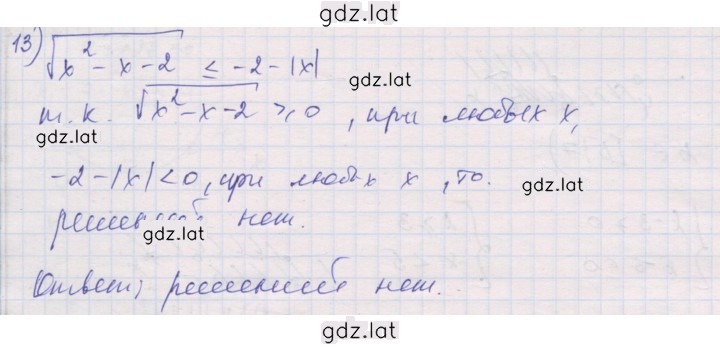 gdz.lat
13) √(x² - x - 2) ≤ -2 - |x|
gdz.lat
т. к. √(x² - x - 2) ≥ 0, при любых x,
gdz.lat
-2 - |x| < 0, при любых x, то.
gdz.lat
решений нет.
gdz.lat
Ответ; решений нет.
gdz.lat